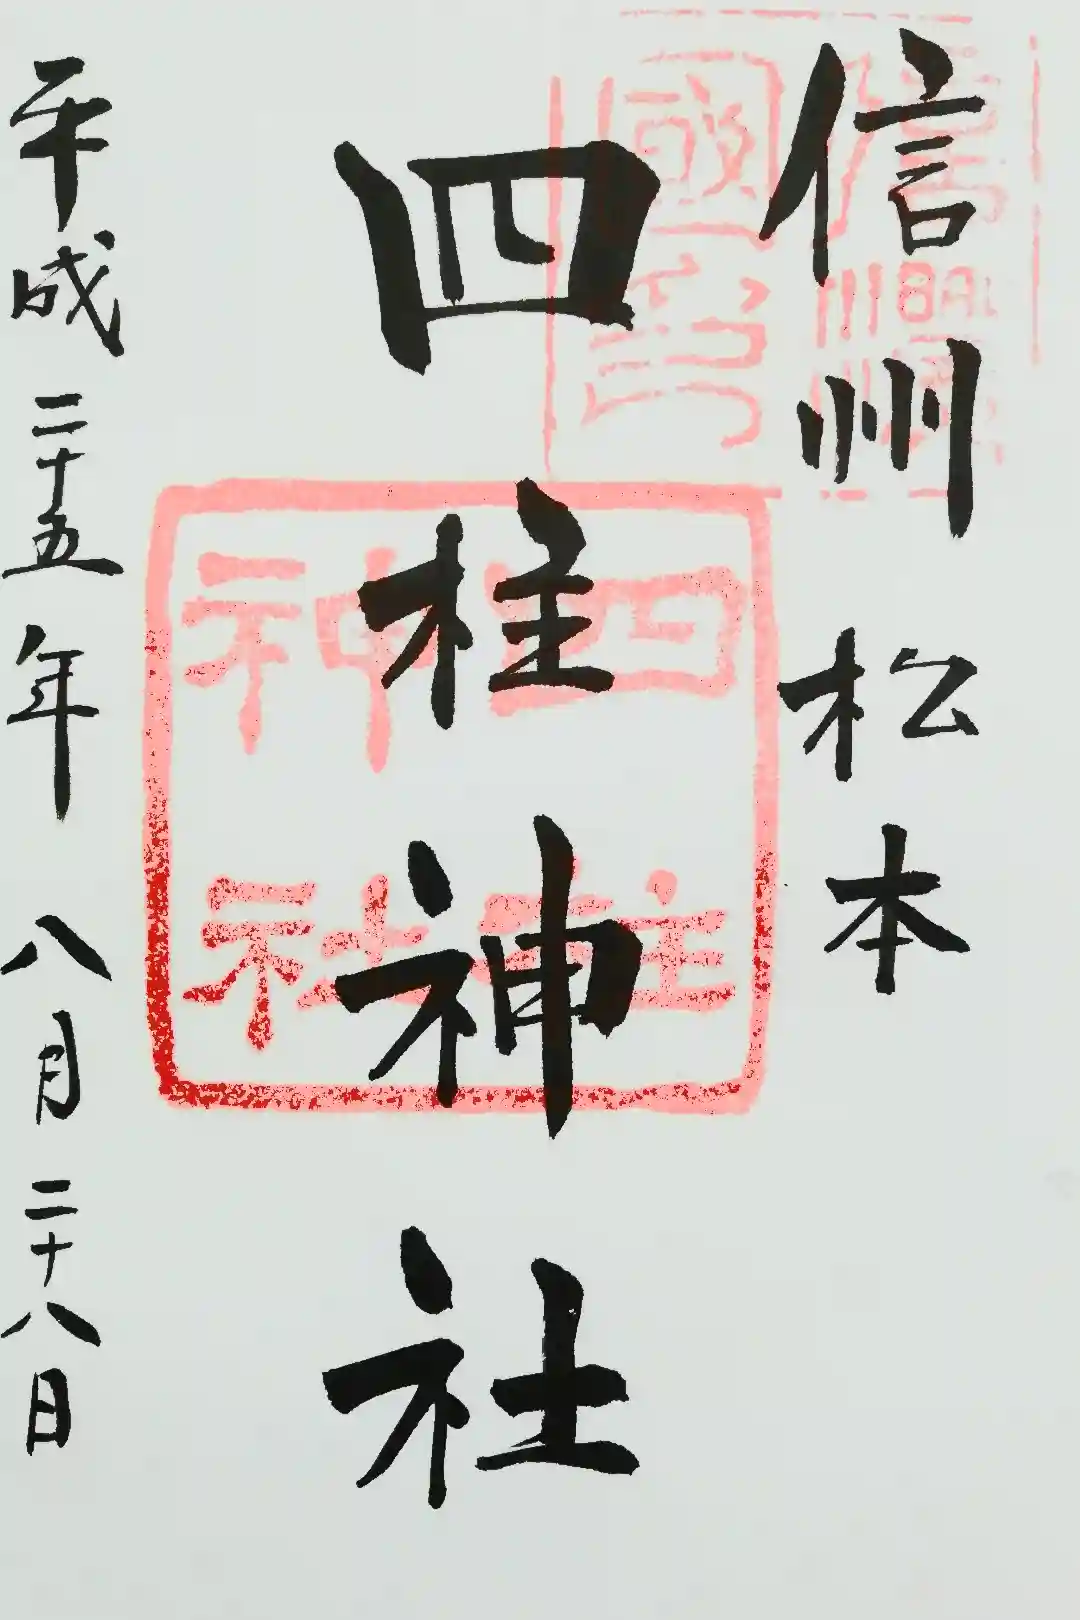 信州松本
四柱神社
平成二十五年八月二十八日
四柱
神社